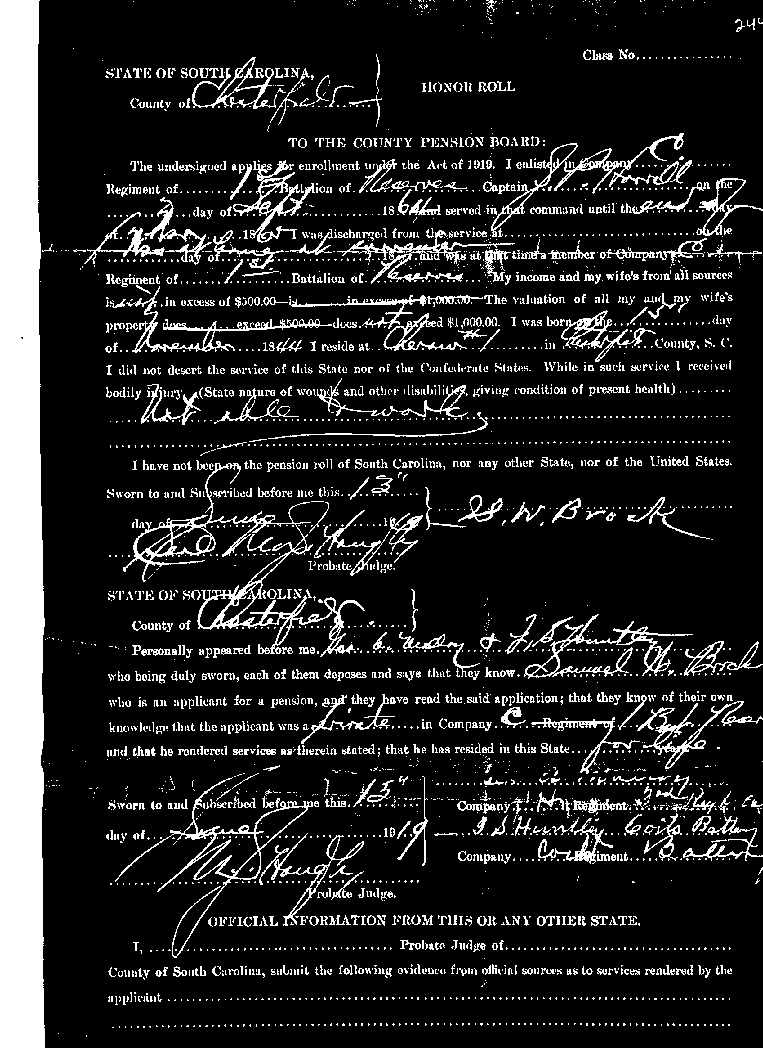 244
Class No.
STATE OF SOUTH CAROLINA,
County of Chesterfield
HONOR ROLL
TO THE COUNTY PENSION BOARD:
The undersigned applies for enrollment under the Act of 1919. I enlisted in Company C
Regiment of 1st Battalion of Reserves Captain on the
day of Sept 1864 and served in that command until the end
of 1865 I was discharged from the service at on the
day of 18 and was at that time a member of Company C
Regiment of 1st Battalion of Reserves My income and my wife's from all sources
is not in excess of $500.00 is in excess of $1,000.00. The valuation of all my and my wife's
property does exceed $500.00 does not exceed $1,000.00. I was born on the 15 day
of November 1844 I reside at Cheraw in County, S. C.
I did not desert the service of this State nor of the Confederate States. While in such service I received
bodily injury, (State nature of wounds and other disabilities, giving condition of present health)
Not able to work
I have not been on the pension roll of South Carolina, nor any other State, nor of the United States.
Sworn to and Subscribed before me this 13"
day of June 1919 S. W. Brock
Probate Judge.
STATE OF SOUTH CAROLINA,
County of Chesterfield
Personally appeared before me & Huntley
who being duly sworn, each of them deposes and says that they know Samuel W. Brock
who is an applicant for a pension, and they have read the said application; that they know of their own
knowledge that the applicant was a private in Company C Regiment of 1
and that he rendered services as therein stated; that he has resided in this State for life
Sworn to and Subscribed before me this 13"
Company Regiment
day of June 1919 Huntley Coits Battery
Company Coits Regiment
Probate Judge.
OFFICIAL INFORMATION FROM THIS OR ANY OTHER STATE.
I, Probate Judge of
County of South Carolina, submit the following evidence from official sources as to services rendered by the
applicant